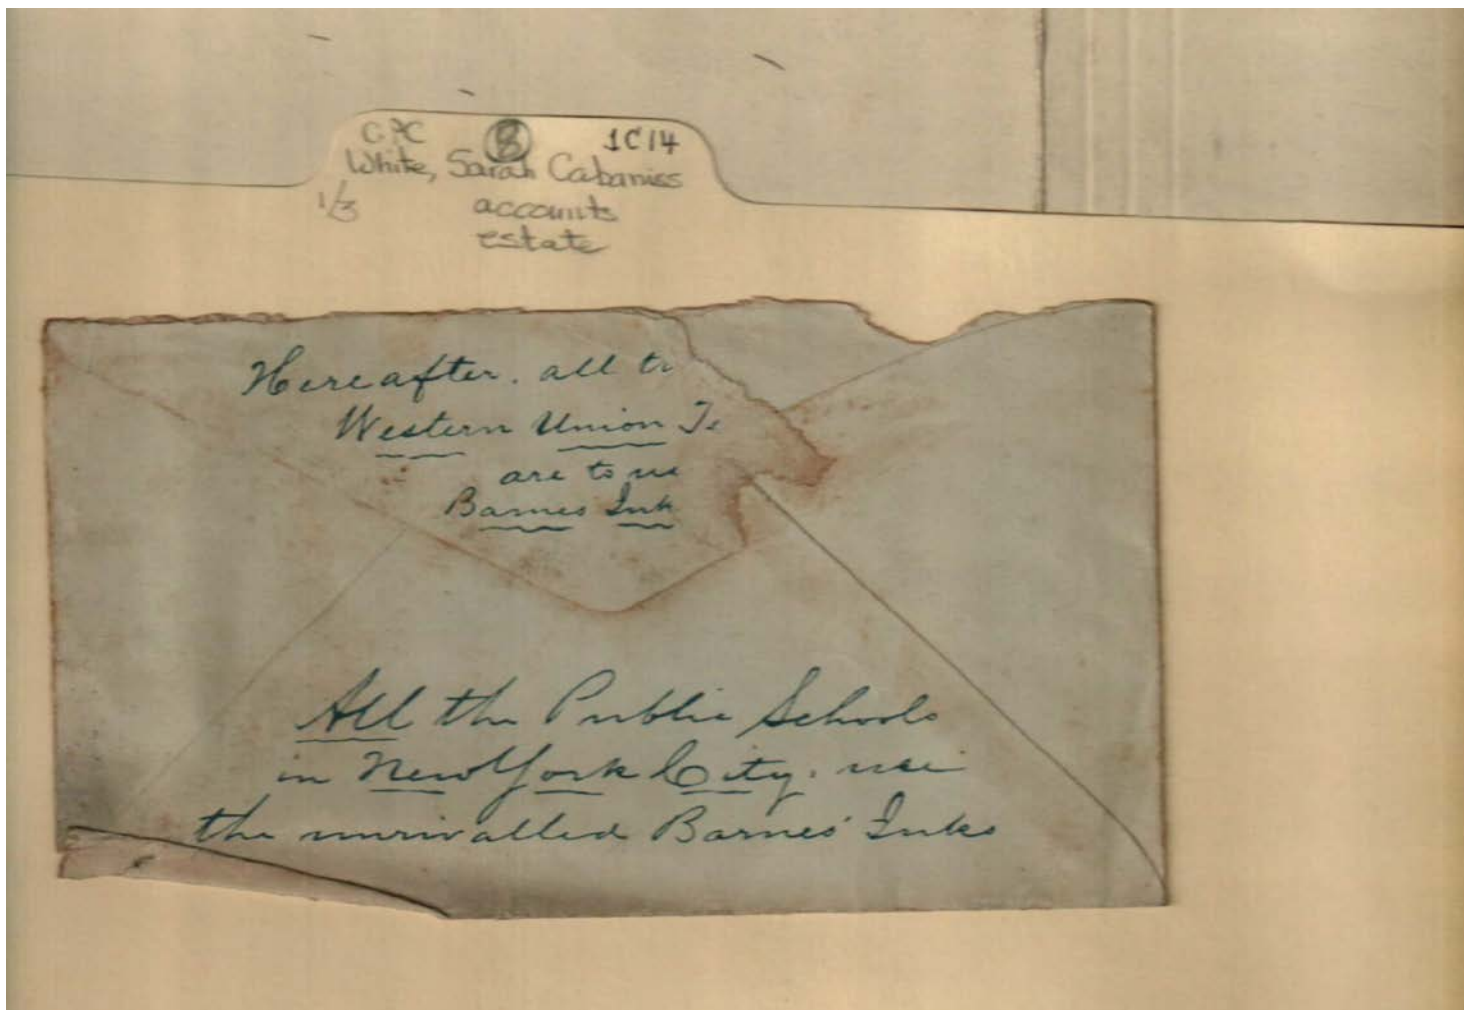 GPC 8 1C14
White, Sarah Cabaniss
1/3 accounts
estate
Hereafter. all tr
Western Union Te
are to us
Barnes Ink
All the Public Schools
in New York City. use
the unrivalled Barnes' Inks